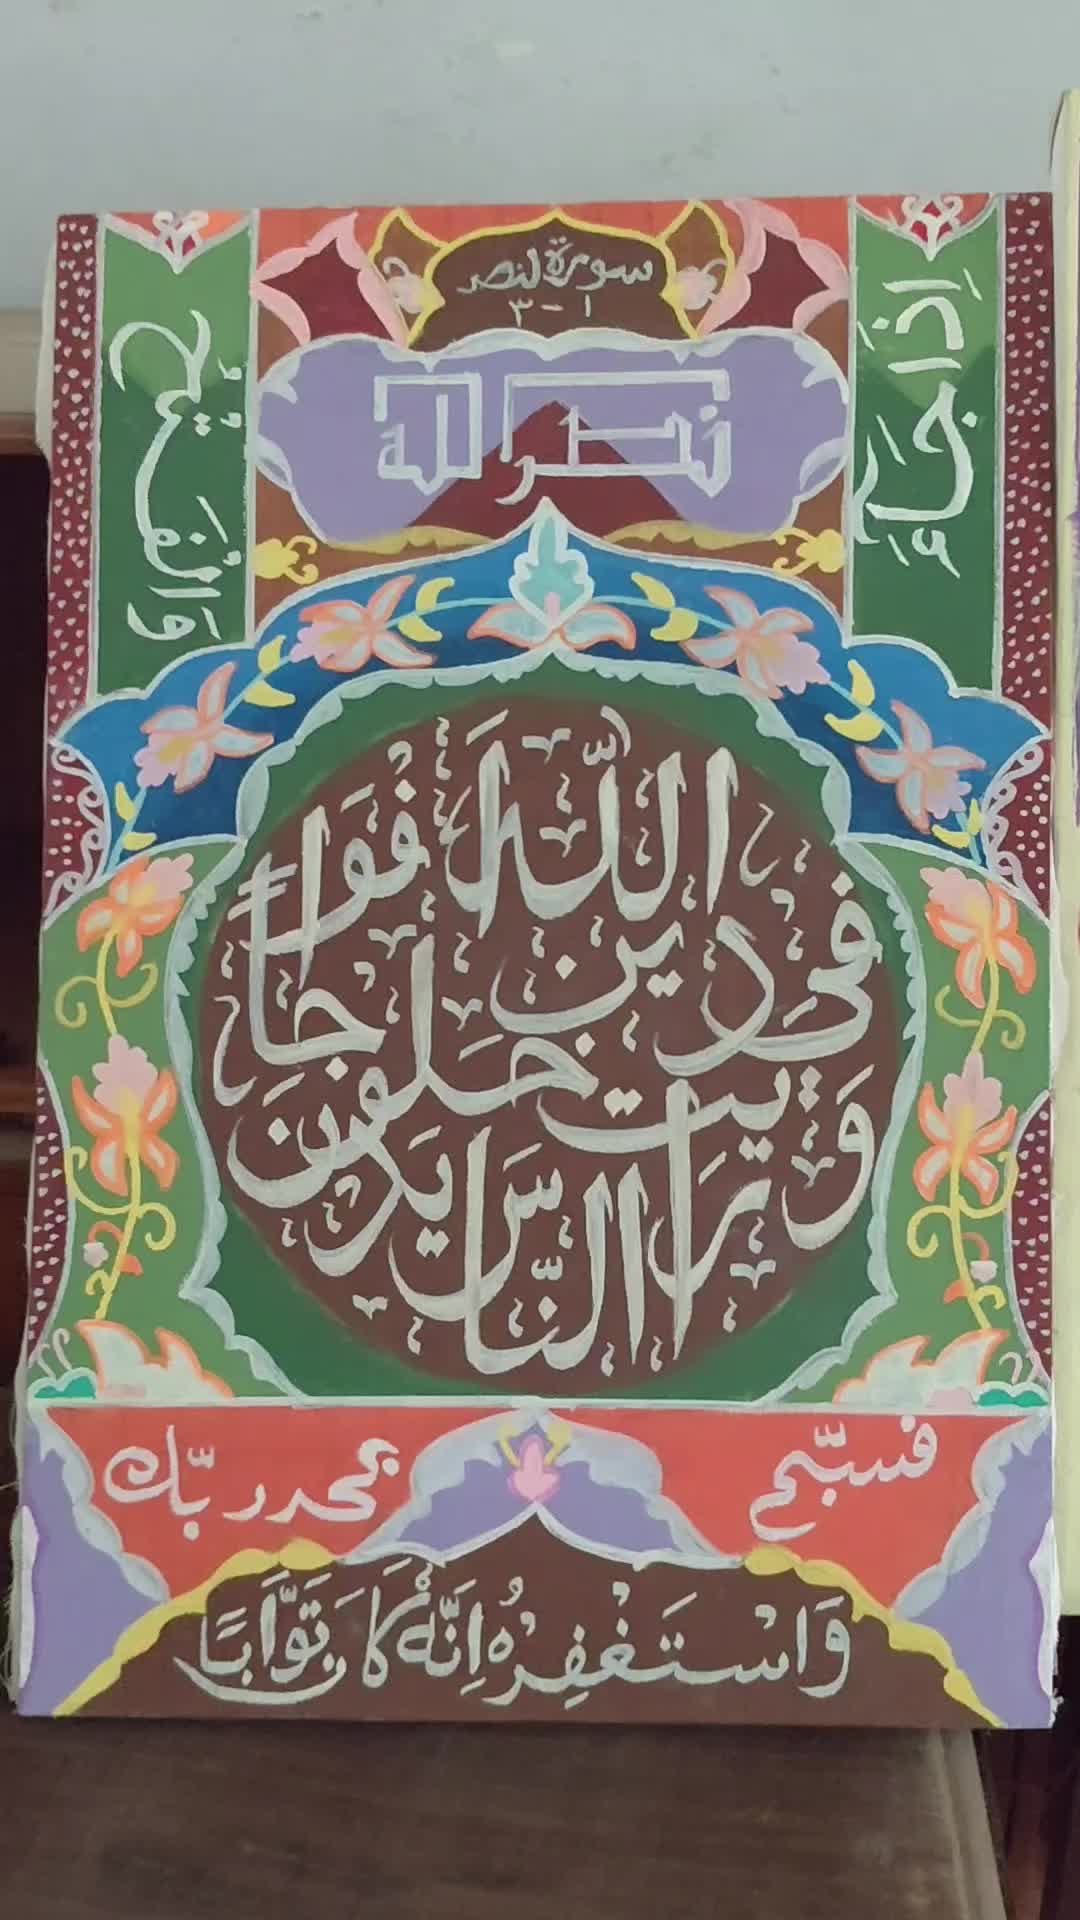 سورة لنصر
١ - ٣
إِذَا جَآءَ
نصر الله
وَالْفَتْحُ
وَرَايت النَّاسَ يَدخلون فِى دين اللّٰه افْوَاجاً
فسبّح بحمد ربّك
وَاسْتَغْفِرْهُ اِنَّهٗ كَانَ تَوَّابًا